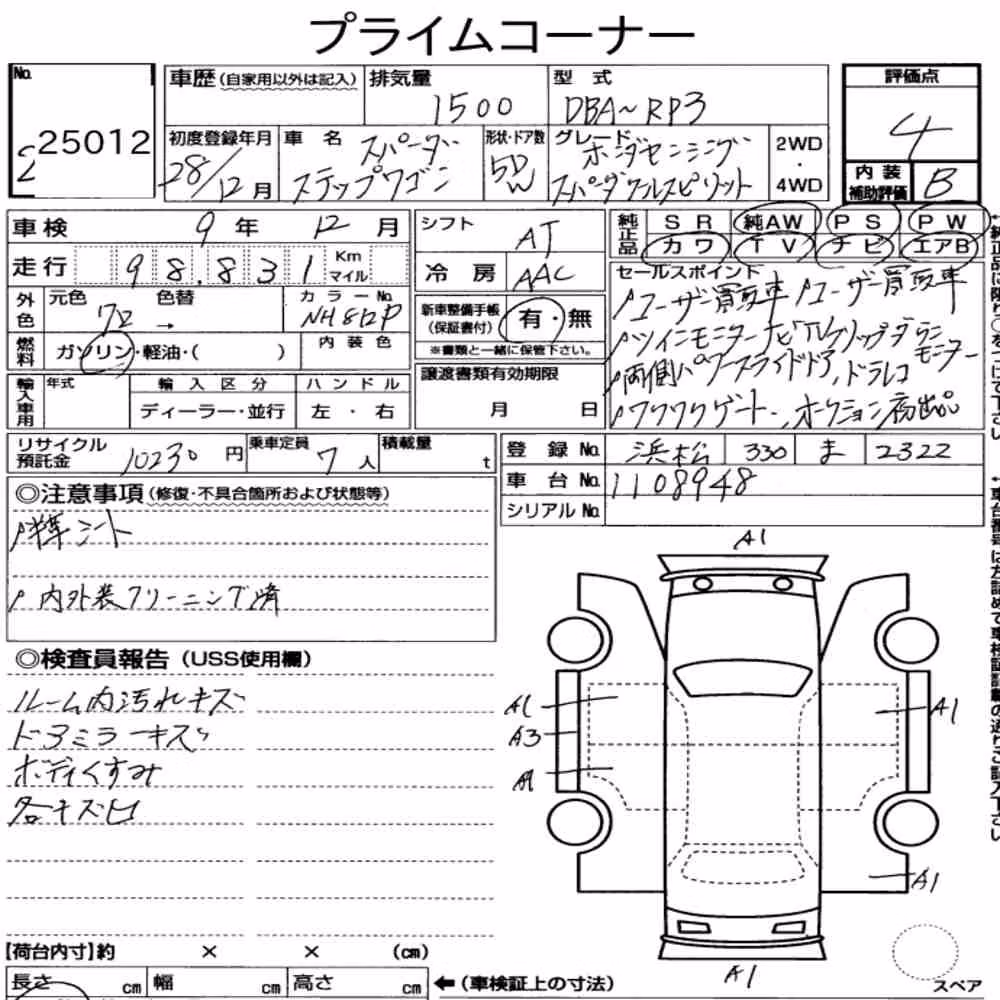 プライムコーナー
No. 25012
車歴(自家用以外は記入) 排気量 1500 型式 DBA~RP3 評価点 4
初度登録年月 28/12月 車名 スパーダ ステップワゴン 形状・ドア数 5D W グレード ホンダセンシング スパーダクールスピリット 2WD・4WD 内装補助評価 B
車検 9年 12月 シフト AT 純正品 SR 純AW PS PW
カワ TV ナビ エアB
走行 98,831 Km マイル 冷房 AAC
セールスポイント
ユーザー買取車 ユーザー買取車
ツインモニターナビ フリップダウンモニター
両側パワースライドドア、ドラレコ
ワクワクゲート、オークション初出品
外色 元色 クロ 色替 → カラーNo. NH812P
新車整備手帳(保証書付) 有・無
※書類と一緒に保管下さい。
燃料 ガソリン・軽油・( ) 内装色
譲渡書類有効期限 月 日
輸入車用 年式 輸入区分 ディーラー・並行 ハンドル 左・右
リサイクル預託金 10230円 乗車定員 7人 積載量 t
登録No. 浜松 330 ま 2322
車台No. 1108948
シリアルNo.
◎注意事項(修復・不具合箇所および状態等)
半革シート
内外装クリーニング済
◎検査員報告(USS使用欄)
ルーム内汚れキズ
ドアミラーキズ
ボディくすみ
各キズ凹
A1
A1
A3
A1
A1
A1
A1
【荷台内寸】約 × × (cm)
長さ cm 幅 cm 高さ cm ←(車検証上の寸法)
スペア